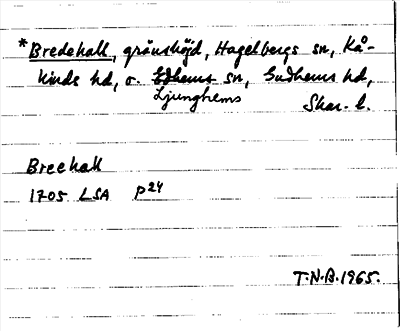 *Bredehall, gränshöjd, Hagelbergs sn, Kå-
kinds hd, o. Edhems sn, Gudhems hd,
Ljunghems Skar. l.
Breehall
1705 LSA P24
T.N.B.1965.